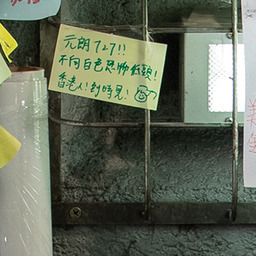 元朗727!!
不向白色恐怖低頭!
香港人!到時見!